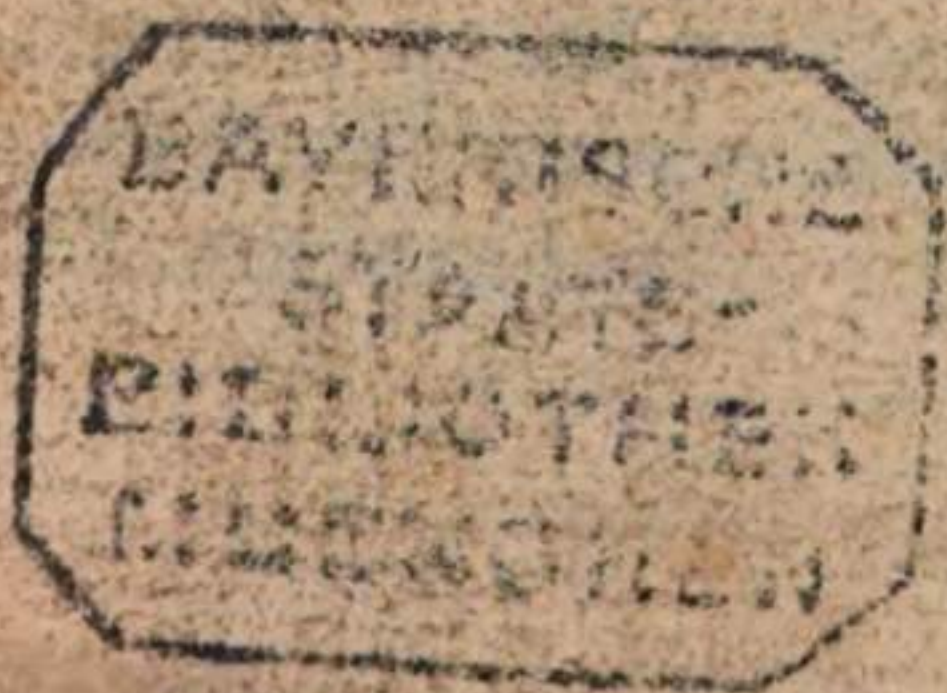 BAYERISCHE
STAATS-
BIBLIOTHEK
MÜNCHEN